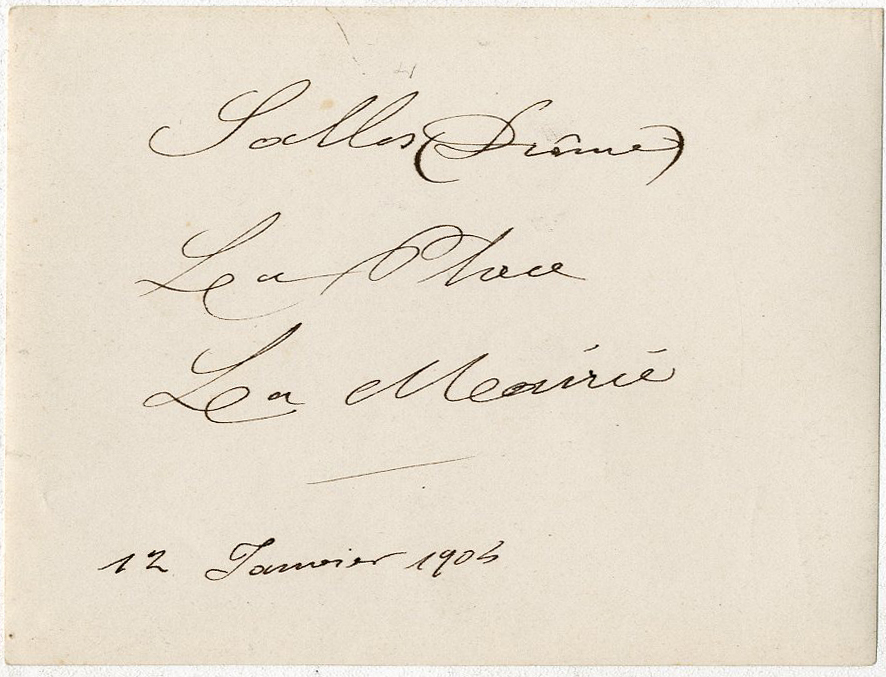 Salles (Drôme)
La Place
La Mairie
12 Janvier 1905